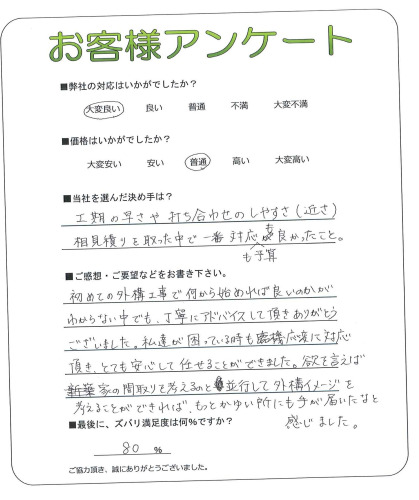 お客様アンケート
■弊社の対応はいかがでしたか？
大変良い 良い 普通 不満 大変不満
■価格はいかがでしたか？
大変安い 安い 普通 高い 大変高い
■当社を選んだ決め手は？
工期の早さや打ち合わせのしやすさ(近さ)
相見積りを取った中で一番対応も良かったこと。
も予算
■ご感想・ご要望などをお書き下さい。
初めての外構工事で何から始めれば良いのかが
わからない中でも、丁寧にアドバイスして頂きありがとう
ございました。私達が困っている時も臨機応変に対応
頂き、とても安心して任せることができました。欲を言えば
新築家の間取りを考えるのと並行して外構イメージを
考えることができれば、もっとかゆい所にも手が届いたなと
感じました。
■最後に、ズバリ満足度は何％ですか？
80 %
ご協力頂き、誠にありがとうございました。